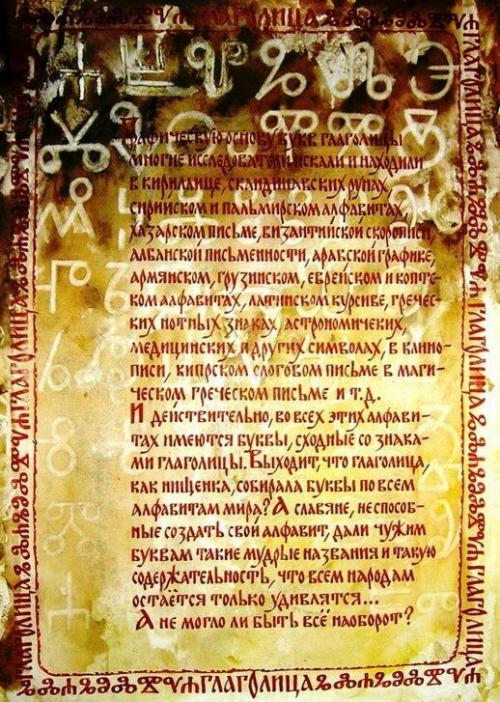 ГЛАГОЛИЦА
Графическую основу букв глаголицы
многие исследователи искали и находили
в кириллице, скандинавских рунах,
сирийском и пальмирском алфавитах,
хазарском письме, византийской скорописи,
албанской письменности, арабской графике,
армянском, грузинском, еврейском и коптс-
ком алфавитах, латинском курсиве, гречес-
ких нотных знаках, астрономичеких,
медицинских и других символах, в клино-
писи, кипрском слоговом письме в маги-
ческом греческом письме и т.д.
И действительно, во всех этих алфави-
тах имеются буквы, сходные со знака-
ми глаголицы. Выходит, что глаголица,
как нищенка, собирала буквы по всем
алфавитам мира? А славяне, неспособ-
ные создать свой алфавит, дали чужим
буквам такие мудрые названия и такую
содержательность, что всем народам
остаётся только удивлятся...
А не могло ли быть всё наоборот?
ГЛАГОЛИЦА
ГЛАГОЛИЦА
ГЛАГОЛИЦА
ГЛАГОЛИЦА
ГЛАГОЛИЦА
ГЛАГОЛИЦА
ГЛАГОЛИЦА